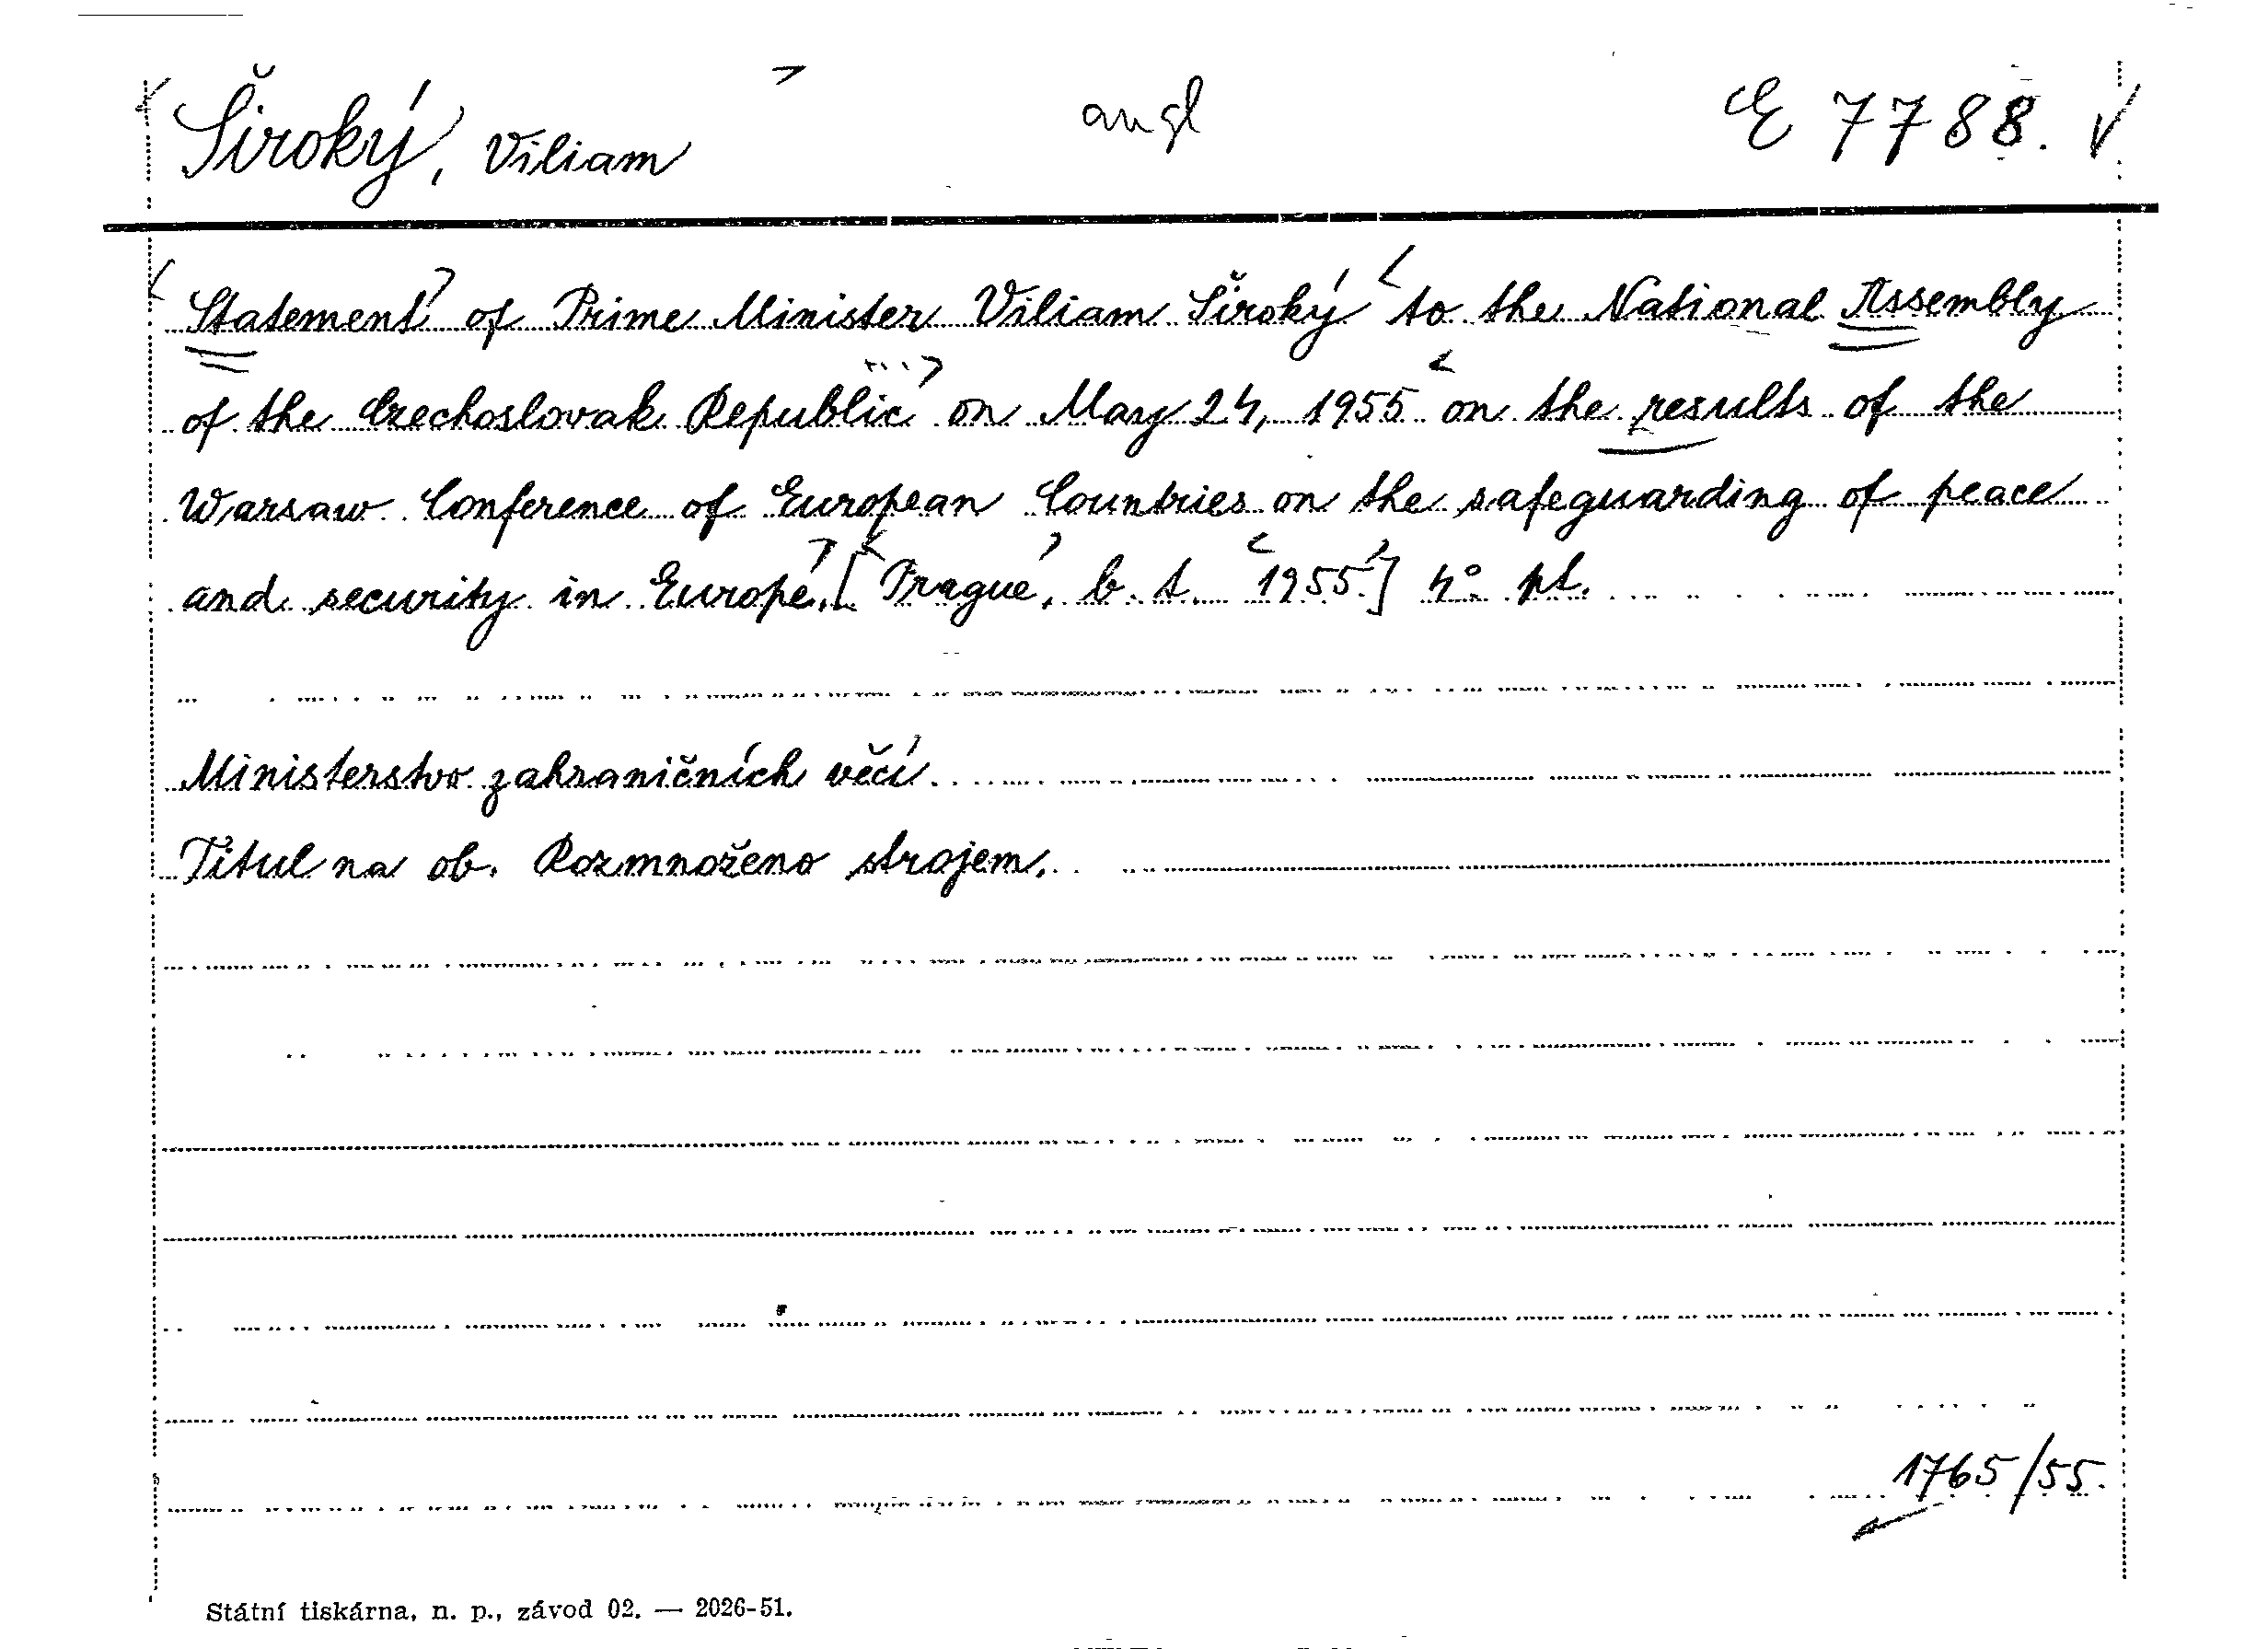 Široký, Viliam angl E 7788.
Statement of Prime Minister Viliam Široký to the National Assembly
of the Czechoslovak Republic on May 24, 1955 on the results of the
Warsaw Conference of European Countries on the safeguarding of peace
and security in Europe. [Prague, b. t. 1955.] 4° pt.
Ministerstvo zahraničních věcí.
Titul na ob. Rozmnoženo strojem.
1765/55.
Státní tiskárna, n. p., závod 02. — 2026-51.